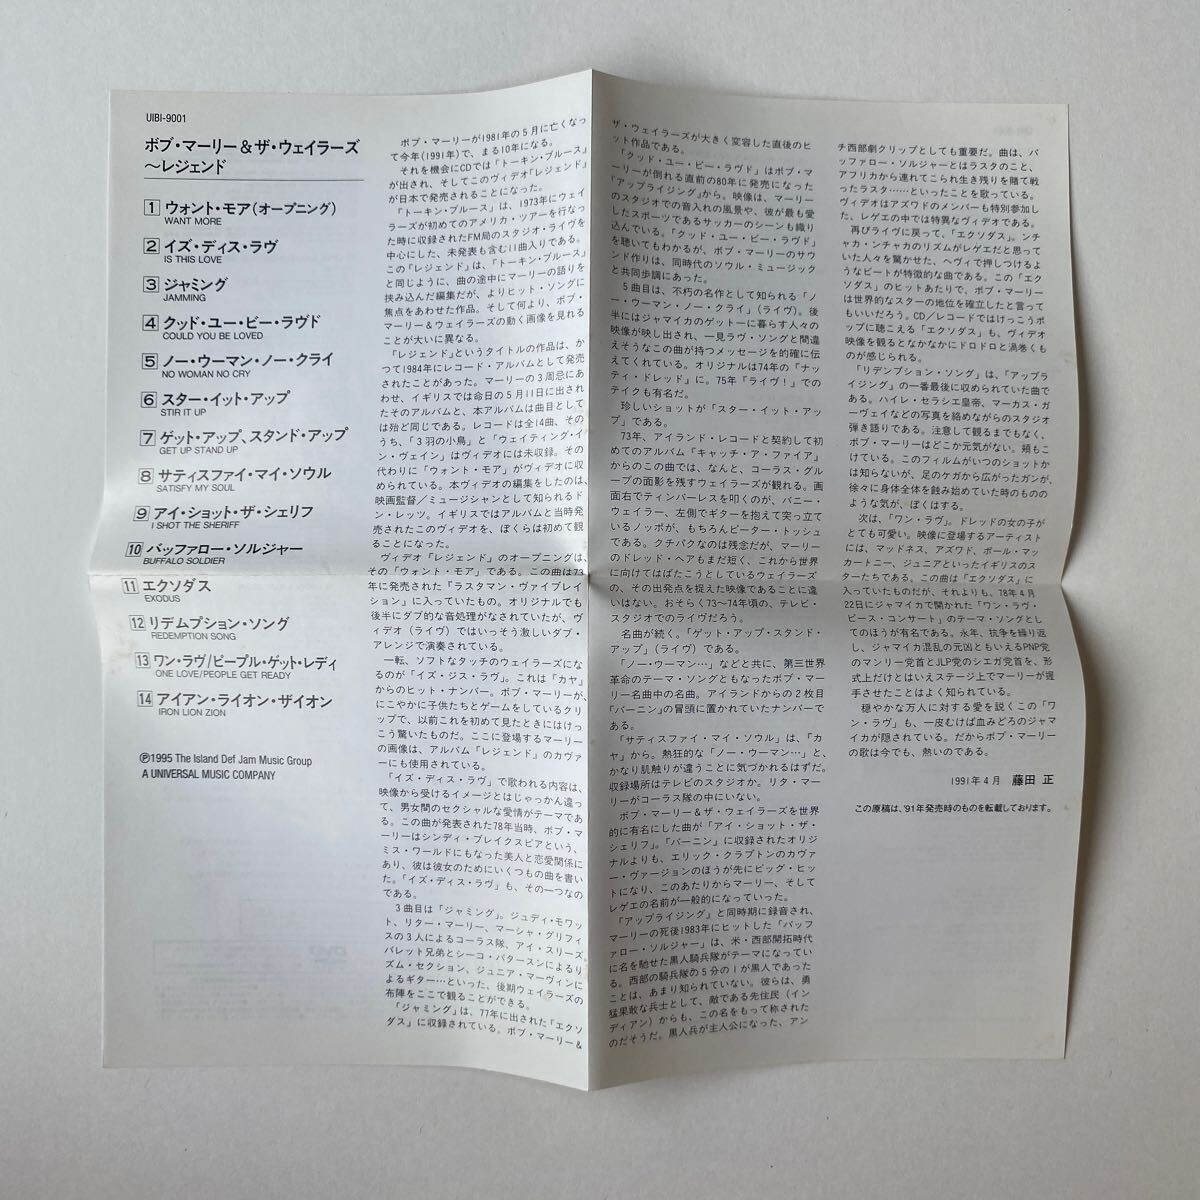 UIBI-9001
ボブ・マーリー&ザ・ウェイラーズ
〜レジェンド
1 ウォント・モア(オープニング)
WANT MORE
2 イズ・ディス・ラヴ
IS THIS LOVE
3 ジャミング
JAMMING
4 クッド・ユー・ビー・ラヴド
COULD YOU BE LOVED
5 ノー・ウーマン・ノー・クライ
NO WOMAN NO CRY
6 スター・イット・アップ
STIR IT UP
7 ゲット・アップ、スタンド・アップ
GET UP STAND UP
8 サティスファイ・マイ・ソウル
SATISFY MY SOUL
9 アイ・ショット・ザ・シェリフ
I SHOT THE SHERIFF
10 バッファロー・ソルジャー
BUFFALO SOLDIER
11 エクソダス
EXODUS
12 リデムプション・ソング
REDEMPTION SONG
13 ワン・ラヴ/ピープル・ゲット・レディ
ONE LOVE/PEOPLE GET READY
14 アイアン・ライオン・ザイオン
IRON LION ZION
℗1995 The Island Def Jam Music Group
A UNIVERSAL MUSIC COMPANY
ボブ・マーリーが1981年の5月に亡くなっ
て今年(1991年)で、まる10年になる。
それを機会にCDでは「トーキン・ブルース」
が出され、そしてこのヴィデオ「レジェンド」
が日本で発売されることになった。
「トーキン・ブルース」は、1973年にウェイ
ラーズが初めてのアメリカ・ツアーを行なっ
た時に収録されたFM局のスタジオ・ライヴを
中心にした、未発表も含む11曲入りである。
この「レジェンド」は、「トーキン・ブルース」
と同じように、曲の途中にマーリーの語りを
挟み込んだ編集だが、よりヒット・ソングに
焦点をあわせた作品。そして何より、ボブ・
マーリー&ウェイラーズの動く画像を見れる
ことが大いに異なる。
「レジェンド」というタイトルの作品は、か
つて1984年にレコード・アルバムとして発売
されたことがあった。マーリーの3周忌にあ
わせ、イギリスでは命日の5月11日に出され
たそのアルバムと、本アルバムは曲目として
は殆ど同じである。レコードは全14曲、その
うち、「3羽の小鳥」と「ウェイティング・イ
ン・ヴェイン」はヴィデオには未収録。その
代わりに「ウォント・モア」がヴィデオに収
められている。本ヴィデオの編集をしたのは、
映画監督/ミュージシャンとして知られるド
ン・レッツ。イギリスではアルバムと当時発
売されたこのヴィデオを、ぼくらは初めて観
ることになった。
ヴィデオ「レジェンド」のオープニングは、
その「ウォント・モア」である。この曲は73
年に発売された「ラスタマン・ヴァイブレイ
ション」に入っていたもの。オリジナルでも
後半にダブ的な音処理がなされていたが、ヴ
ィデオ(ライヴ)ではいっそう激しいダブ・
アレンジで演奏されている。
一転、ソフトなタッチのウェイラーズにな
るのが「イズ・ジス・ラヴ」。これは「カヤ」
からのヒット・ナンバー。ボブ・マーリーが、
にこやかに子供たちとゲームをしているクリ
ップで、以前これを初めて見たときにはけっ
こう驚いたものだ。ここに登場するマーリー
の画像は、アルバム「レジェンド」のカヴァ
ーにも使用されている。
「イズ・ディス・ラヴ」で歌われる内容は、
映像から受けるイメージとはじゃっかん違っ
て、男女間のセクシャルな愛情がテーマであ
る。この曲が発表された78年当時、ボブ・マ
ーリーはシンディ・ブレイクスピアという、
ミス・ワールドにもなった美人と恋愛関係に
あり、彼は彼女のためにいくつもの曲を書い
た。「イズ・ディス・ラヴ」も、その一つなの
である。
3曲目は「ジャミング」。ジュディ・モワッ
ト、リター・マーリー、マーシャ・グリフィ
スの3人によるコーラス隊、アイ・スリーズ。
バレット兄弟とシーコ・パタースンによるリ
ズム・セクション、ジュニア・マーヴィンに
よるギター…といった、後期ウェイラーズの
布陣をここで観ることができる。
「ジャミング」は、77年に出された「エクソ
ダス」に収録されている。ボブ・マーリー&
ザ・ウェイラーズが大きく変容した直後のヒ
ット作品である。
「クッド・ユー・ビー・ラヴド」はボブ・マ
ーリーが倒れる直前の80年に発売になった
「アップライジング」から。映像は、マーリー
のスタジオでの音入れの風景や、彼が最も愛
したスポーツであるサッカーのシーンも織り
込んでいる。「クッド・ユー・ビー・ラヴド」
を聴いてもわかるが、ボブ・マーリーのサウ
ンド作りは、同時代のソウル・ミュージック
と共同歩調にあった。
5曲目は、不朽の名作として知られる「ノ
ー・ウーマン・ノー・クライ」(ライヴ)。後
半にはジャマイカのゲットーに暮らす人々の
映像が映し出され、一見ラヴ・ソングと間違
えそうなこの曲が持つメッセージを的確に伝
えてくれている。オリジナルは74年の「ナッ
ティ・ドレッド」に。75年「ライヴ!」での
テイクも有名だ。
珍しいショットが「スター・イット・アッ
プ」である。
73年、アイランド・レコードと契約して初
めてのアルバム「キャッチ・ア・ファイア」
からのこの曲では、なんと、コーラス・グル
ープの面影を残すウェイラーズが観れる。画
面右でティンバーレスを叩くのが、バニー・
ウェイラー、左側でギターを抱えて突っ立て
いるノッポが、もちろんピーター・トッシュ
である。クチパクなのは残念だが、マーリー
のドレッド・ヘアもまだ短く、これから世界
に向けてはばたこうとしているウェイラーズ
の、その出発点を捉えた映像であることに違
いはない。おそらく73〜74年頃の、テレビ・
スタジオでのライヴだろう。
名曲が続く。「ゲット・アップ・スタンド・
アップ」(ライヴ)である。
「ノー・ウーマン…」などと共に、第三世界
革命のテーマ・ソングともなったボブ・マー
リー名曲中の名曲。アイランドからの2枚目
「バーニン」の冒頭に置かれていたナンバーで
ある。
「サティスファイ・マイ・ソウル」は、「カ
ヤ」から。熱狂的な「ノー・ウーマン…」と、
かなり肌触りが違うことに気づかれるはずだ。
収録場所はテレビのスタジオか。リタ・マー
リーがコーラス隊の中にいない。
ボブ・マーリー&ザ・ウェイラーズを世界
的に有名にした曲が「アイ・ショット・ザ・
シェリフ」。「バーニン」に収録されたオリジ
ナルよりも、エリック・クラプトンのカヴァ
ー・ヴァージョンのほうが先にビッグ・ヒッ
トになり、このあたりからマーリー、そして
レゲエの名前が一般的になっていった。
「アップライジング」と同時期に録音され、
マーリーの死後1983年にヒットした「バッフ
ァロー・ソルジャー」は、米・西部開拓時代
に名を馳せた黒人騎兵隊がテーマになってい
る。西部の騎兵隊の5分の1が黒人であった
ことは、あまり知られていない。彼らは、勇
猛果敢な兵士として、敵である先住民(イン
ディアン)からも、この名をもって称された
のだそうだ。黒人兵が主人公になった、アン
チ西部劇クリップとしても重要だ。曲は、バ
ッファロー・ソルジャーとはラスタのこと、
アフリカから連れてこられ生き残りを賭て戦
ったラスタ……といったことを歌っている。
ヴィデオはアズワドのメンバーも特別参加し
た、レゲエの中では特異なヴィデオである。
再びライヴに戻って、「エクソダス」。ンチ
ャカ・ンチャカのリズムがレゲエだと思って
いた人々を驚かせた、ヘヴィで押しつけるよ
うなビートが特徴的な曲である。この「エク
ソダス」のヒットあたりで、ボブ・マーリー
は世界的なスターの地位を確立したと言って
もいいだろう。CD/レコードではけっこうポ
ップに聴こえる「エクソダス」も、ヴィデオ
映像を観るとなかなかにドロドロと渦巻くも
のが感じられる。
「リデンプション・ソング」は、「アップラ
イジング」の一番最後に収められていた曲で
ある。ハイレ・セラシエ皇帝、マーカス・ガ
ーヴェイなどの写真を絡めながらのスタジオ
弾き語りである。注意して観るまでもなく、
ボブ・マーリーはどこか元気がない。頬もこ
けている。このフィルムがいつのショットか
は知らないが、足のケガから広がったガンが、
徐々に身体全体を蝕み始めていた時のものの
ような気が、ぼくはする。
次は、「ワン・ラヴ」。ドレッドの女の子が
とても可愛い。映像に登場するアーティスト
には、マッドネス、アズワド、ポール・マッ
カートニー、ジュニアといったイギリスのス
ターたちである。この曲は「エクソダス」に
入っていたものだが、それよりも、78年4月
22日にジャマイカで開かれた「ワン・ラヴ・
ピース・コンサート」のテーマ・ソングとし
てのほうが有名である。永年、抗争を繰り返
し、ジャマイカ混乱の元凶ともいえるPNP党
のマンリー党首とJLP党のシエガ党首を、形
式上だけとはいえステージ上でマーリーが握
手させたことはよく知られている。
穏やかな万人に対する愛を説くこの「ワ
ン・ラヴ」も、一皮むけば血みどろのジャマ
イカが隠されている。だからボブ・マーリー
の歌は今でも、熱いのである。
1991年4月 藤田 正
この原稿は、'91年発売時のものを転載しております。